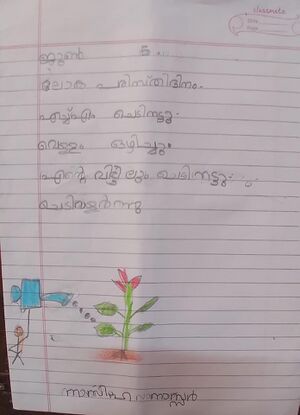 classmate
Date
Page
ജൂൺ 5
ലോക പരിസ്തിദിനം.
എച്ച്എം ചെടിനട്ടു.
വെള്ളം ഒഴിച്ചും
എന്റെ വീട്ടിലും ചെടിനട്ടു.
ചെടിവളർന്നു